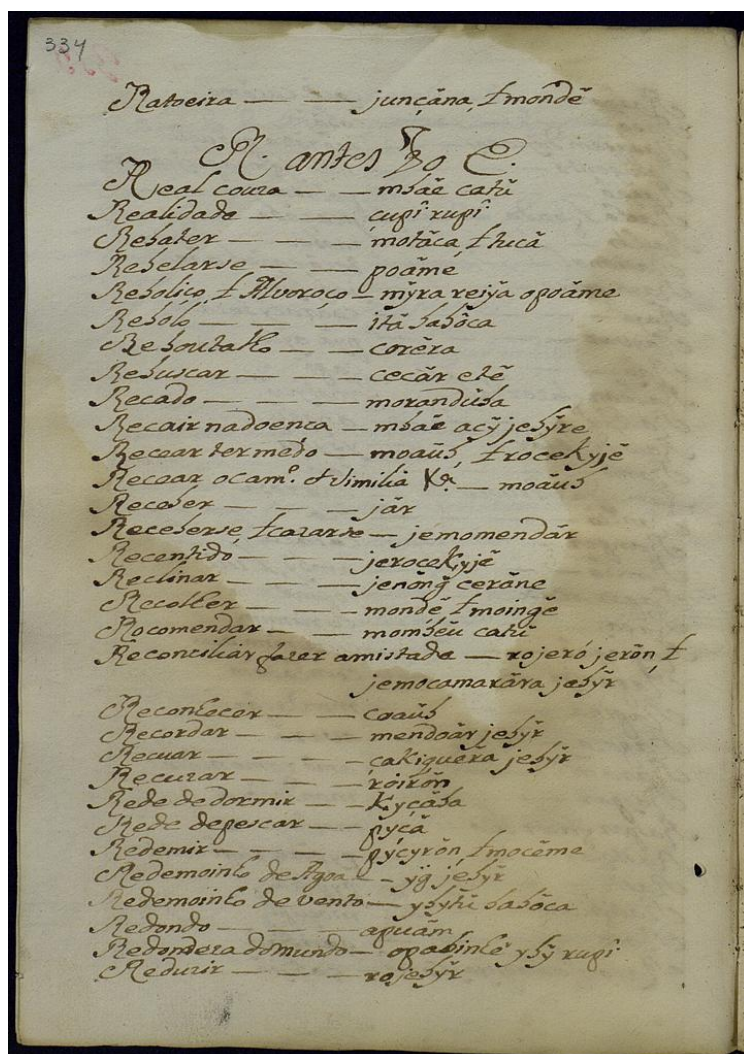 334
Ratoeira — — junçãna, ł mondẽ
R. antes do E.
Real couza — — mbãe catũ
Realidade — — — cupî rupî
Rebater — — — motãca, ł tucã
Rebelarse — — — poãme
Reboliço, ł Alvoroço — mỹra reiya opoãme
Rebolo — — — itã babõca
Reboutalho — — corẽra
Rebuscar — — — cecãr etẽ
Recado — — — morandũba
Recair na doença — mbãe acỹ jebỹre
Recear ter medo — moaũb, ł rocekyjẽ
Recear o cam.º & similia &ª — moaũb
Receber — — — jãr
Receberse, ł cazarse — jemomendãr
Recentido — — — jerocekyjẽ
Reclinar — — — jenõng cerãne
Recolher — — — mondẽ ł moingẽ
Rocomendar — — mombẽu catũ
Reconciliar fazer amistade — rojeró jerõn, ł
jemocamarãra jebỹr
Reconhecer — — — coaũb
Recordar — — — mendoãr jebỹr
Recuar — — — cakiquẽra jebỹr
Recuzar — — — roirõn
Rede de dormir — — kyçãba
Rede de pescar — — pyçã
Redemir — — — pycyrõn, ł mocẽme
Redemoinho de Agoa — yg jebỹr
Redemoinho de vento — ybytũ babõca
Redondo — — — apuãm
Redondeza do mundo — opabinhẽ ybỹ rupî
Reduzir — — — rojebỹr